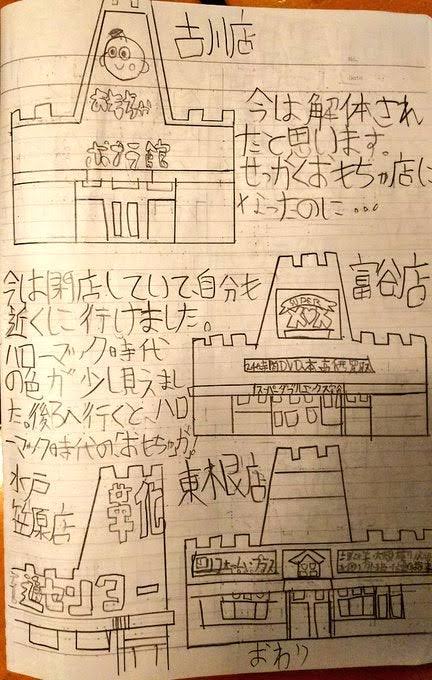 古川店
おもちゃ
ポプラ館
今は解体され
たと思います。
せっかくおもちゃ店に
なったのに…
今は閉店していて自分も
近くに行けました。
ハローマック時代
の色が少し見えまし
た。後ろへ行くと、ハロ
ーマック時代の「おもちゃ」が。
富谷店
SUPER
24時間DVD本
水戸
笠原店
革化
センター
東木根店
ホーム・プラス
おわり